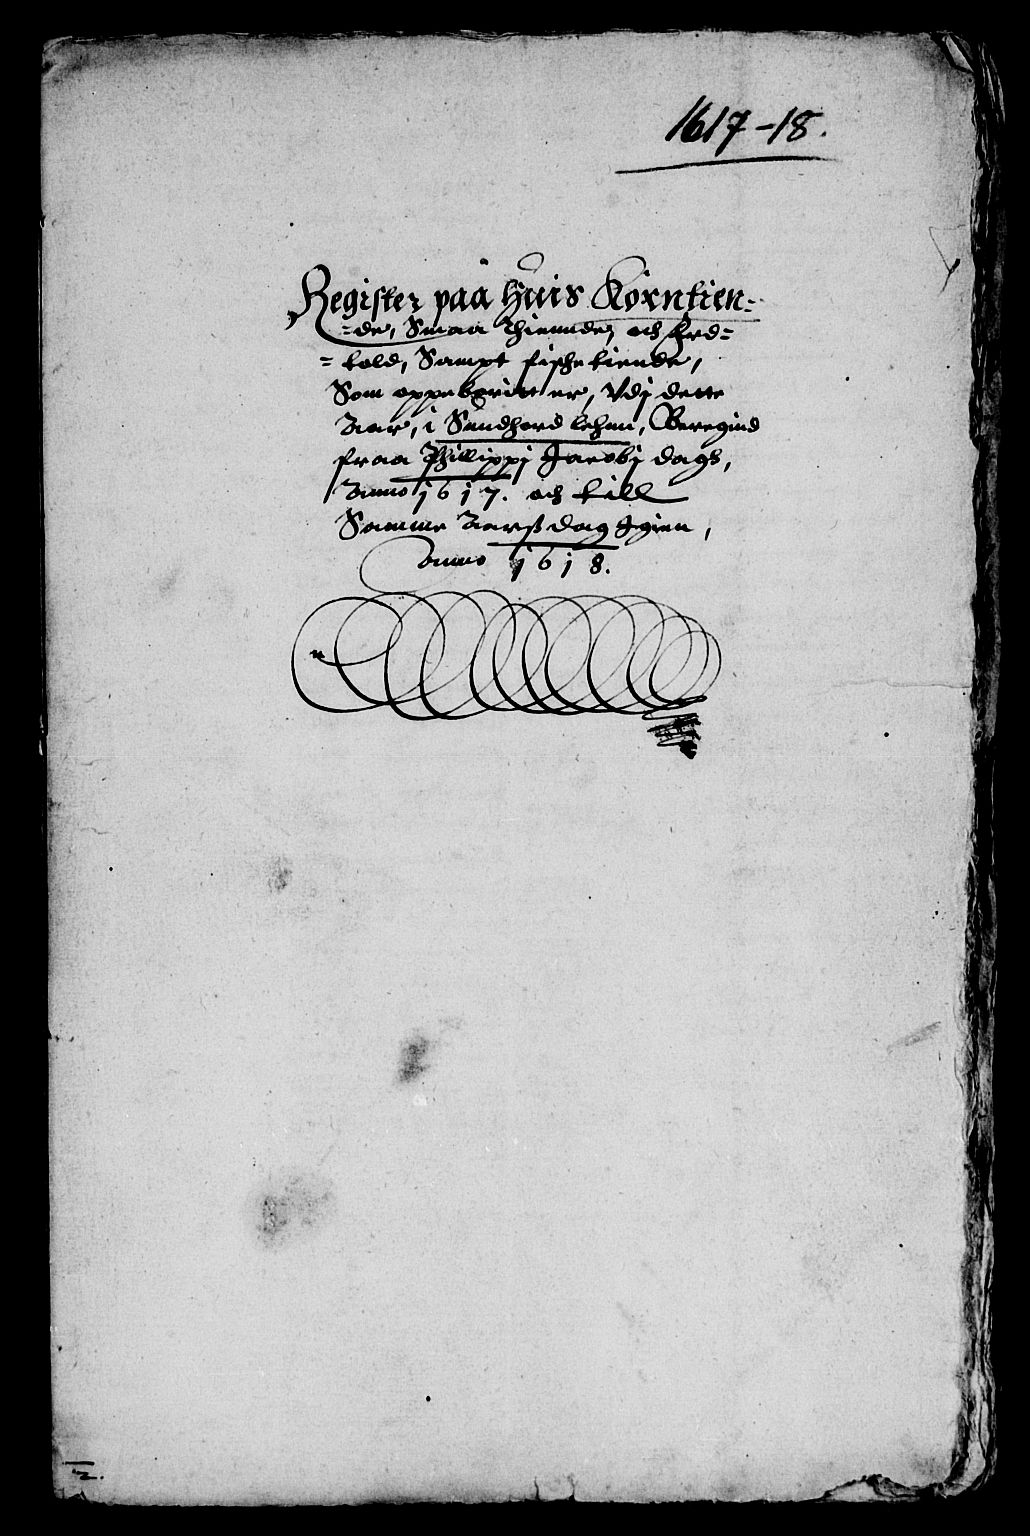 1617-18.
Register paa Huis Korntien=
=de, Smaa Thiennder och Led=
=told, Sampt fischetiende,
Som oppebgritt er, Vdj dette
Aar, i Sundhord lehen, Beregind
fraa Phillippj Jacobj dags,
Anno 1617. och till
Samme Aarß dag Igien,
Anno 1618.
2.